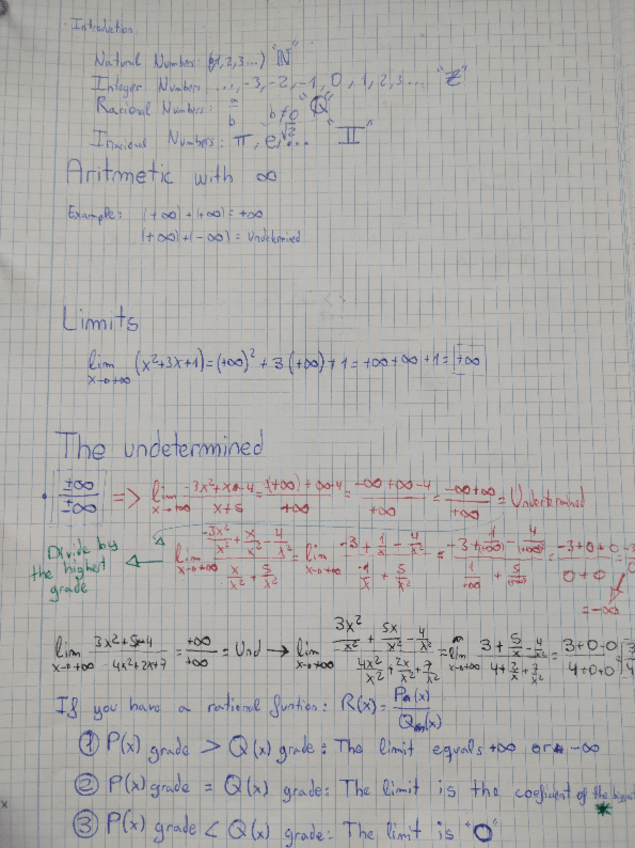 Introduction
Natural Numbers: (1,2,3...) "ℕ"
Integer Numbers ..., -3, -2, -1, 0, 1, 2, 3... "ℤ"
Racional Numbers: a/b b≠0 "ℚ"
Irracional Numbers: π, e, √2... "𝕀"
Aritmetic with ∞
Example: (+∞)+(+∞)=+∞
(+∞)+(-∞)= Undetermined
Limits
lim x→+∞ (x²+3x+1)=(+∞)²+3(+∞)+1=+∞+∞+1=+∞
The undetermined
• ±∞/±∞ => lim x→+∞ (-3x²+x-4)/(x+5) = ((+∞)+∞-4)/+∞ = (-∞+∞-4)/+∞ = (-∞+∞)/+∞ = Undertermined
Divide by the highest grade ← lim x→+∞ (-3x²/x²+x/x²-4/x²)/(x/x²+5/x²) = lim x→+∞ (-3+1/x-4/x²)/(1/x+5/x²) = (-3+1/(+∞)-4/(+∞))/(1/+∞+5/+∞) = (-3+0+0)/(0+0) = -3/0
=-∞
lim x→+∞ (3x²+5x-4)/(4x²+2x+7) = +∞/+∞ = Und → lim x→+∞ (3x²/x²+5x/x²-4/x²)/(4x²/x²+2x/x²+7/x²) = lim x→+∞ (3+5/x-4/x²)/(4+2/x+7/x²) = (3+0-0)/(4+0+0) = 3/4
If you have a rational funtion: R(x)= Pn(x)/Qm(x)
① P(x) grade > Q(x) grade: The limit equals +∞ or -∞
② P(x) grade = Q(x) grade: The limit is the coeficient of the
③ P(x) grade < Q(x) grade: The limit is "0"